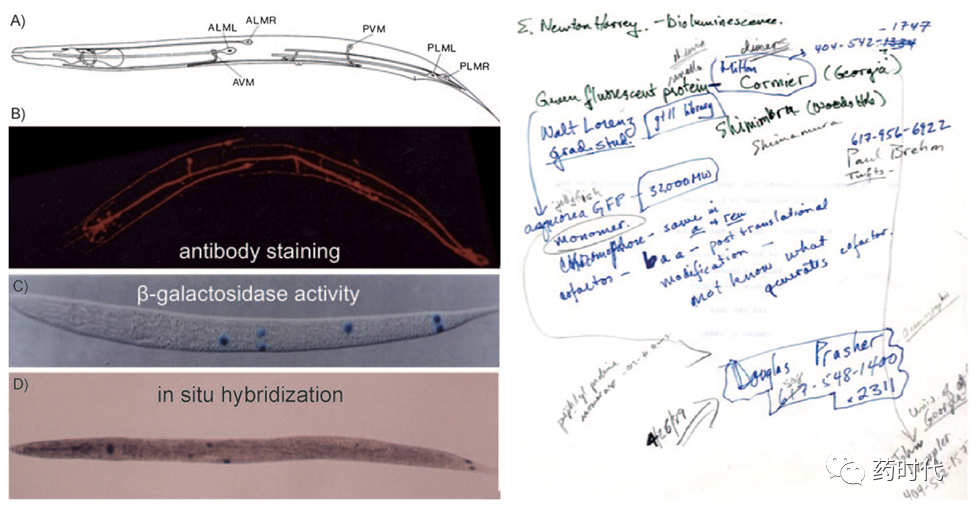 A)
ALML
ALMR
PVM
PLML
PLMR
AVM
B)
antibody staining
C)
β-galactosidase activity
D)
in situ hybridization
E. Newton Harvey. - Bioluminescence.
1747
dimer
404-542-1334
Milton
Green fluorescent protein - Cormier (Georgia)
Walt Lorenz
grad stud.
gt11 library
Shimimbra (Woods Hole)
Shimamura
617-956-6922
Paul Brehm
Tufts -
jellyfish
aequorea GFP - 32,000 MW
monomer.
Chromophore - same in
a + ren
cofactor - b a a - post translational
modification -
not know what
generates cofactor.
Douglas Prasher
508
617-548-1400
x 2311
4/26/89
Univ. of
Georgia
John
404-542-157
药时代